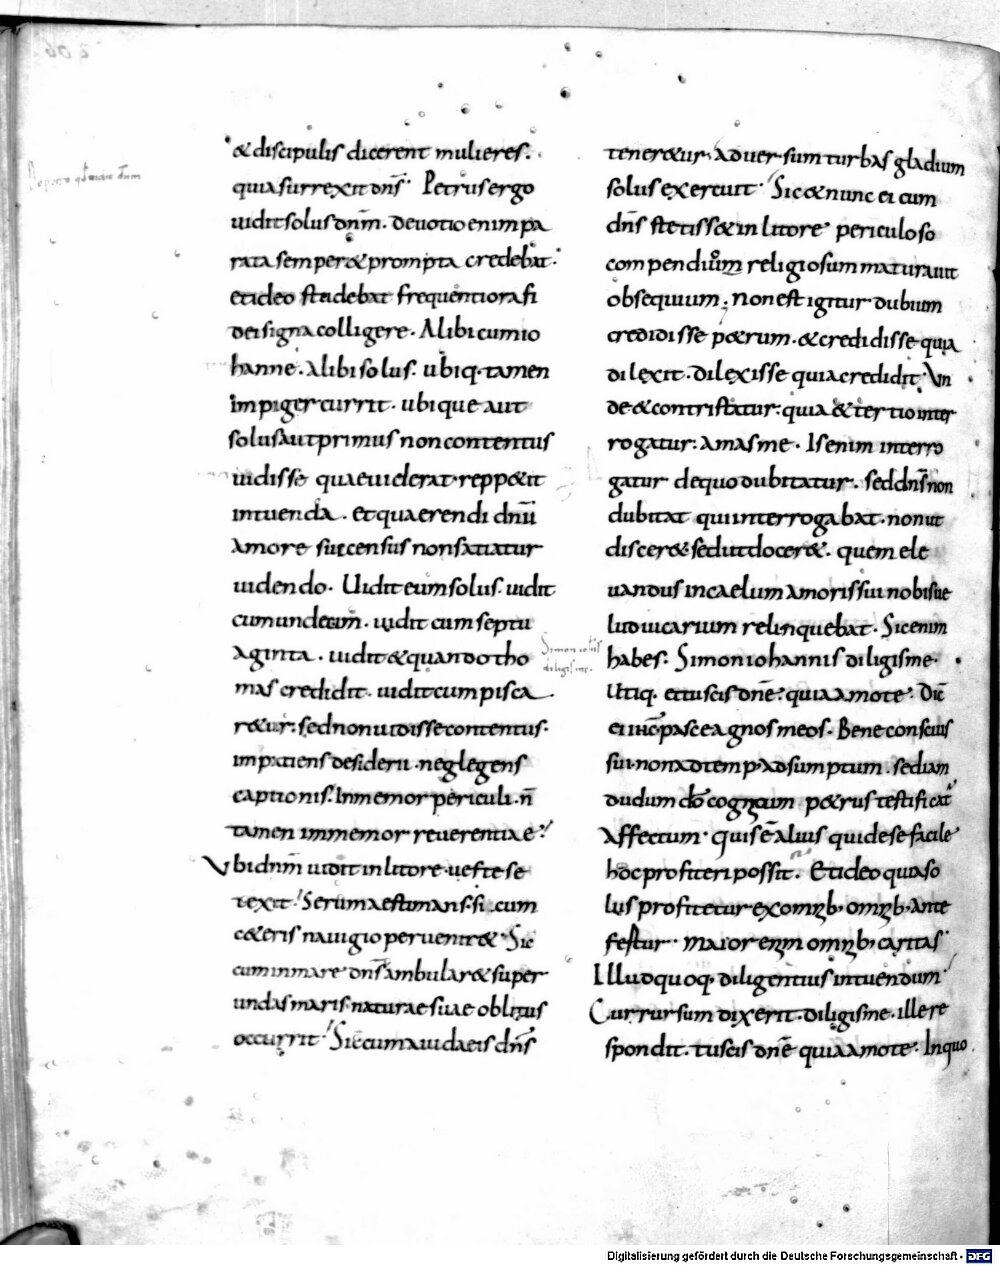 & discipulis dicerent mulieres.
quia surrexit dn̄s. Petrus ergo
uidit solus dnm̄. deuotio enim pa
rata semper & prompta credebat.
et ideo studebat frequentiora fi
dei signa colligere. Alibi cum io
hanne. Alibi solus. ubiq. tamen
impiger currit. ubique aut
solus aut primus non contentus
uidisse quae uiderat. repp&it
intuenda. et quaerendi dnī
amore succensus non satiatur
uidendo. Uidit eum solus. uidit
cum undecim. uidit cum septu
aginta. uidit & quando tho
mas credidit. uidit cum pisca
r&ur. sed non uidisse contentus.
impatiens desiderii. neglegens
captionis. Inmemor periculi. n̄
tamen immemor reuerentiae.
Vbi dnm̄ uidit in litore. ueste se
texit. Serum aestimans. si cum
c&eris nauigio peruenir&. Sic
cum in mare dn̄s ambular& super
undas maris. naturae suae oblitus
occurrit. Sic cum a iudaeis dn̄s
tener&ur. aduersum turbas gladium
solus exercuit. Sic & nunc ei cum
dn̄s stetiss& in litore periculoso
compendium religiosum maturauit
obsequium. non est igitur dubium
credidisse p&rum. & credidisse quia
dilexit. dilexisse quia credidit. Vn
de & contristatur. quia & tertio inter
rogatur. amas me. Is enim interro
gatur de quo dubitatur. sed dn̄s non
dubitat qui interrogabat. non ut
discer& sed ut docer&. quem ele
uandus in caelum amoris sui nobis ue
lut uicarium relinquebat. Sic enim
habes. Simon iohannis diligis me.
Utiq. et tu scis dnē. quia amo te. Dic̄
ei ihc̄ pasce agnos meos. Bene conscius
sui. non ad temp. adsumptum. sed iam
dudum dō cognitum p&rus testificat
affectum. quis ē alius qui de se facile
hoc profiteri possit. Et ideo quia so
lus profitetur ex omnib. omnib. ante
fertur. maior enim omnib. caritas
Illud quoq. diligentius intuendum
Cur rursum dixerit. diligis me. ille re
spondit. tu scis dnē quia amo te. In quo
Simon ioh̄is
diligis me.
Digitalisierung gefördert durch die Deutsche Forschungsgemeinschaft - DFG